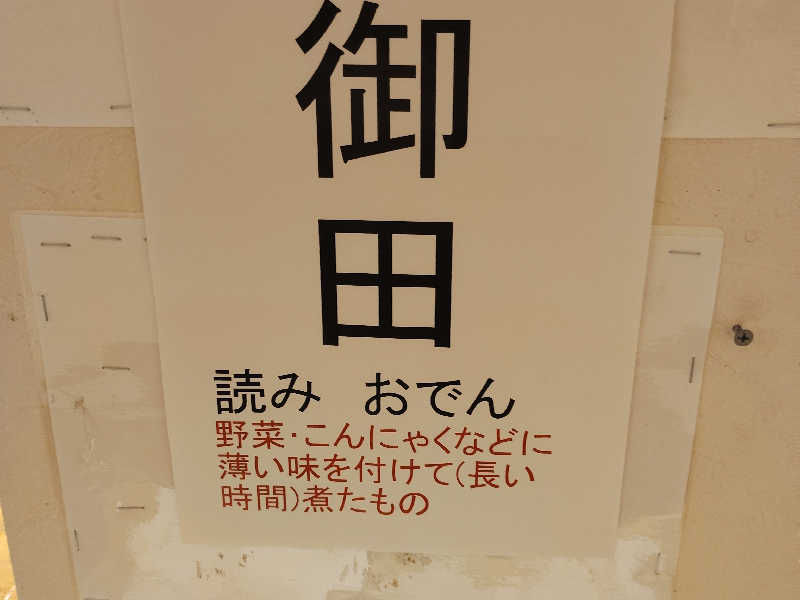 御
田
読み　おでん
野菜・こんにゃくなどに
薄い味を付けて(長い
時間)煮たもの